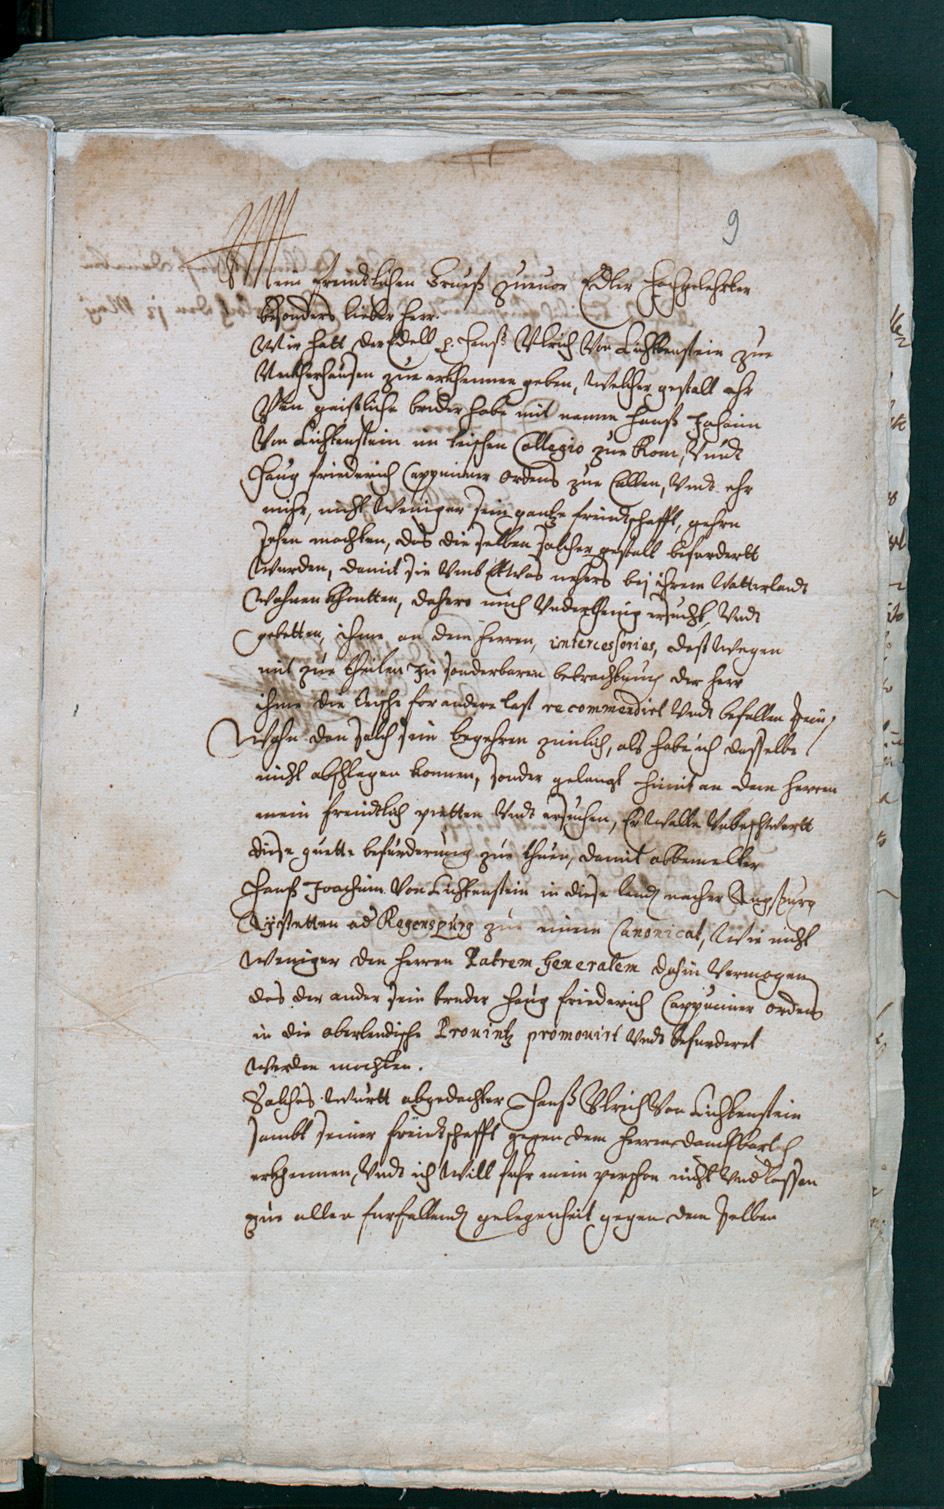 9
Mein freindtlichen Grueß zuuor Edler Hochgelehrter
besonders lieber Herr.
Mir hatt der Edell p. Hanß Vlrich Von Lichtenstein zue
zue erkhennen geben, Welcher gestalt ehr
geistliche brüder habe mit namen Hanß Johaim
Von Lichtenstein im teischen Collegio zue Rom, Vndt
Haug friederich Cappuciner Ordens zue Cöllen, Vnd ehr
nicht Weniger sein gantze freindtschafft, gehrn
sehen mochten, das die selben solcher gestalt befurdertt
Wurden, damit sie Vmb Ettwas nehers bej ihrem Vatterlandt
Wohnen khontten, dahero mich Vnderthenig ersucht, Vndt
gebetten, ihme an dem Herren, intercessories, deßtwegen
mit zue theilen zu sonderbaren betrachtung der Herr
ihme die teische for andere last recommendirt Vndt befollen sein,
Wohn den solch sein begehren zimlich, als habe ich dasselbe
nicht abschlagen konnen, sonder gelangt himit an dem Herren
mein freindtlich pietten Vndt ersuchen, Er Welle Vnbeschwertt
diese guette befurderung zue thuen, damit obbemelter
Hanß Joachim Von Lichtenstein in diese landt nacher Augspurg
Aystetten ad Regenspurg zue einem Canonicat, Wie nicht
Weniger den Herren Patrem Generalem dahin Vermogen
das der ander sein bruder Haug friederich Cappuciner Ordens
in die oberlendische Prouintz promouirt Vndt befurderet
Werden mochten.
Solches Württ obgedachter Hanß Vlrich Von Lichtenstein
sambt seiner freindtschafft gegen dem Herren danckbarlich
erkhennen, Vndt ich Will fuhr mein person nicht Vnd lassen
zue aller furfallendt gelegenheit gegen dem selben